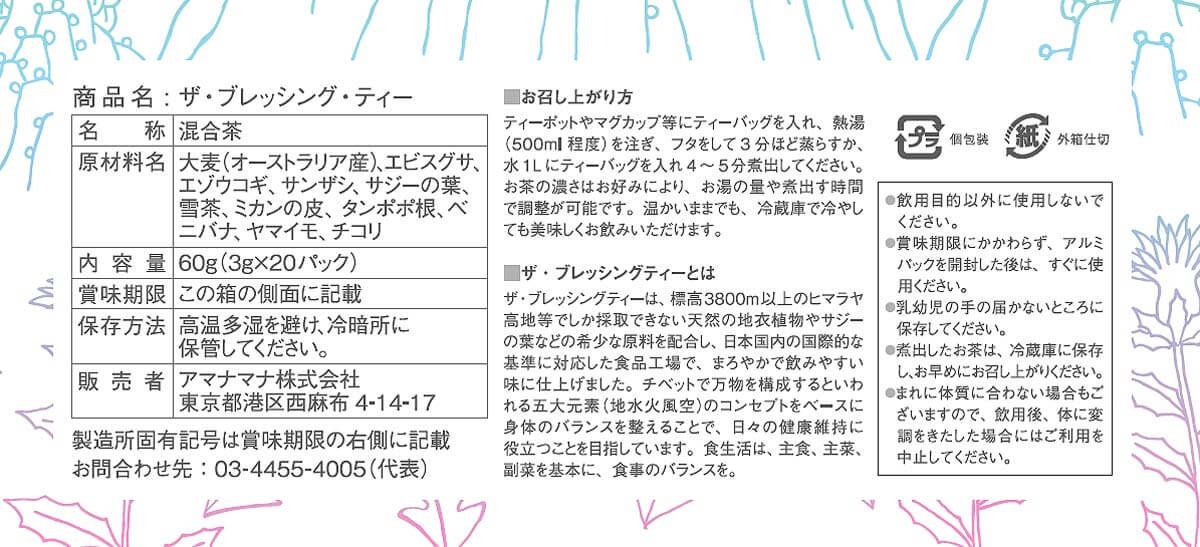 商品名：ザ・ブレッシング・ティー
名称 混合茶
原材料名 大麦（オーストラリア産）、エビスグサ、
エゾウコギ、サンザシ、サジーの葉、
雪茶、ミカンの皮、タンポポ根、ベ
ニバナ、ヤマイモ、チコリ
内容量 60g（3g×20パック）
賞味期限 この箱の側面に記載
保存方法 高温多湿を避け、冷暗所に
保管してください。
販売者 アマナマナ株式会社
東京都港区西麻布 4-14-17
製造所固有記号は賞味期限の右側に記載
お問合わせ先：03-4455-4005（代表）
■お召し上がり方
ティーポットやマグカップ等にティーバッグを入れ、熱湯
（500ml 程度）を注ぎ、フタをして3分ほど蒸らすか、
水1Lにティーバッグを入れ4～5分煮出してください。
お茶の濃さはお好みにより、お湯の量や煮出す時間
で調整が可能です。温かいままでも、冷蔵庫で冷やし
ても美味しくお飲みいただけます。
■ザ・ブレッシングティーとは
ザ・ブレッシングティーは、標高3800m以上のヒマラヤ
高地等でしか採取できない天然の地衣植物やサジー
の葉などの希少な原料を配合し、日本国内の国際的な
基準に対応した食品工場で、まろやかで飲みやすい
味に仕上げました。チベットで万物を構成するといわ
れる五大元素（地水火風空）のコンセプトをベースに
身体のバランスを整えることで、日々の健康維持に
役立つことを目指しています。食生活は、主食、主菜、
副菜を基本に、食事のバランスを。
プラ 個包装 紙 外箱仕切
●飲用目的以外に使用しないで
ください。
●賞味期限にかかわらず、アルミ
パックを開封した後は、すぐに使
用ください。
●乳幼児の手の届かないところに
保存してください。
●煮出したお茶は、冷蔵庫に保存
し、お早めにお召し上がりください。
●まれに体質に合わない場合もご
ざいますので、飲用後、体に変
調をきたした場合にはご利用を
中止してください。